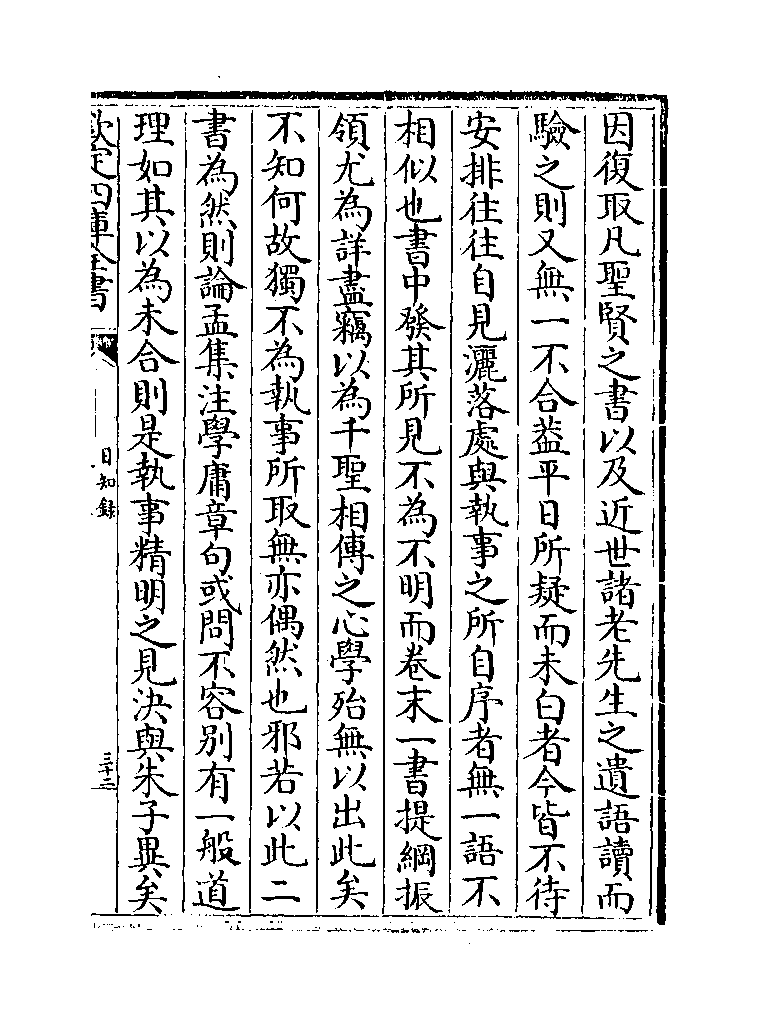 因復取凡聖賢之書以及近世諸老先生之遺語讀而
驗之則又無一不合葢平日所疑而未白者今皆不待
安排往往自見灑落處與執事之所自序者無一語不
相似也書中發其所見不為不明而卷末一書提綱振
領尤為詳盡竊以為千聖相傳之心學殆無以出此矣
不知何故獨不為執事所取無亦偶然也邪若以此二
書為然則論孟集注學庸章句或問不容别有一般道
理如其以為未合則是執事精明之見決與朱子異矣
欽定四庫全書
日知錄
三十二